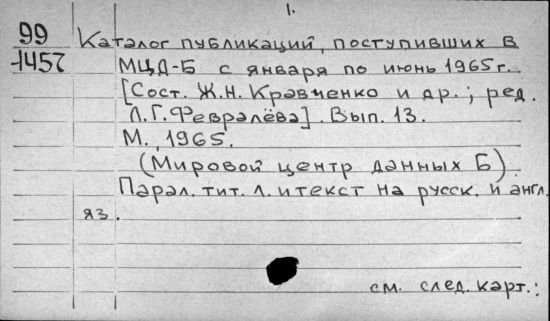 1.
99
1457
Каталог публикаций, поступивших в
МЦД-Б с января по июнь 1965г.
[Сост. Ж.Н. Кравченко и др.; ред.
Л.Г. Февралёва]. Вып. 13.
М., 1965.
(Мировой центр данных Б).
Парал. тит. л. и текст на русск. и англ.
яз.
см. след. карт.: